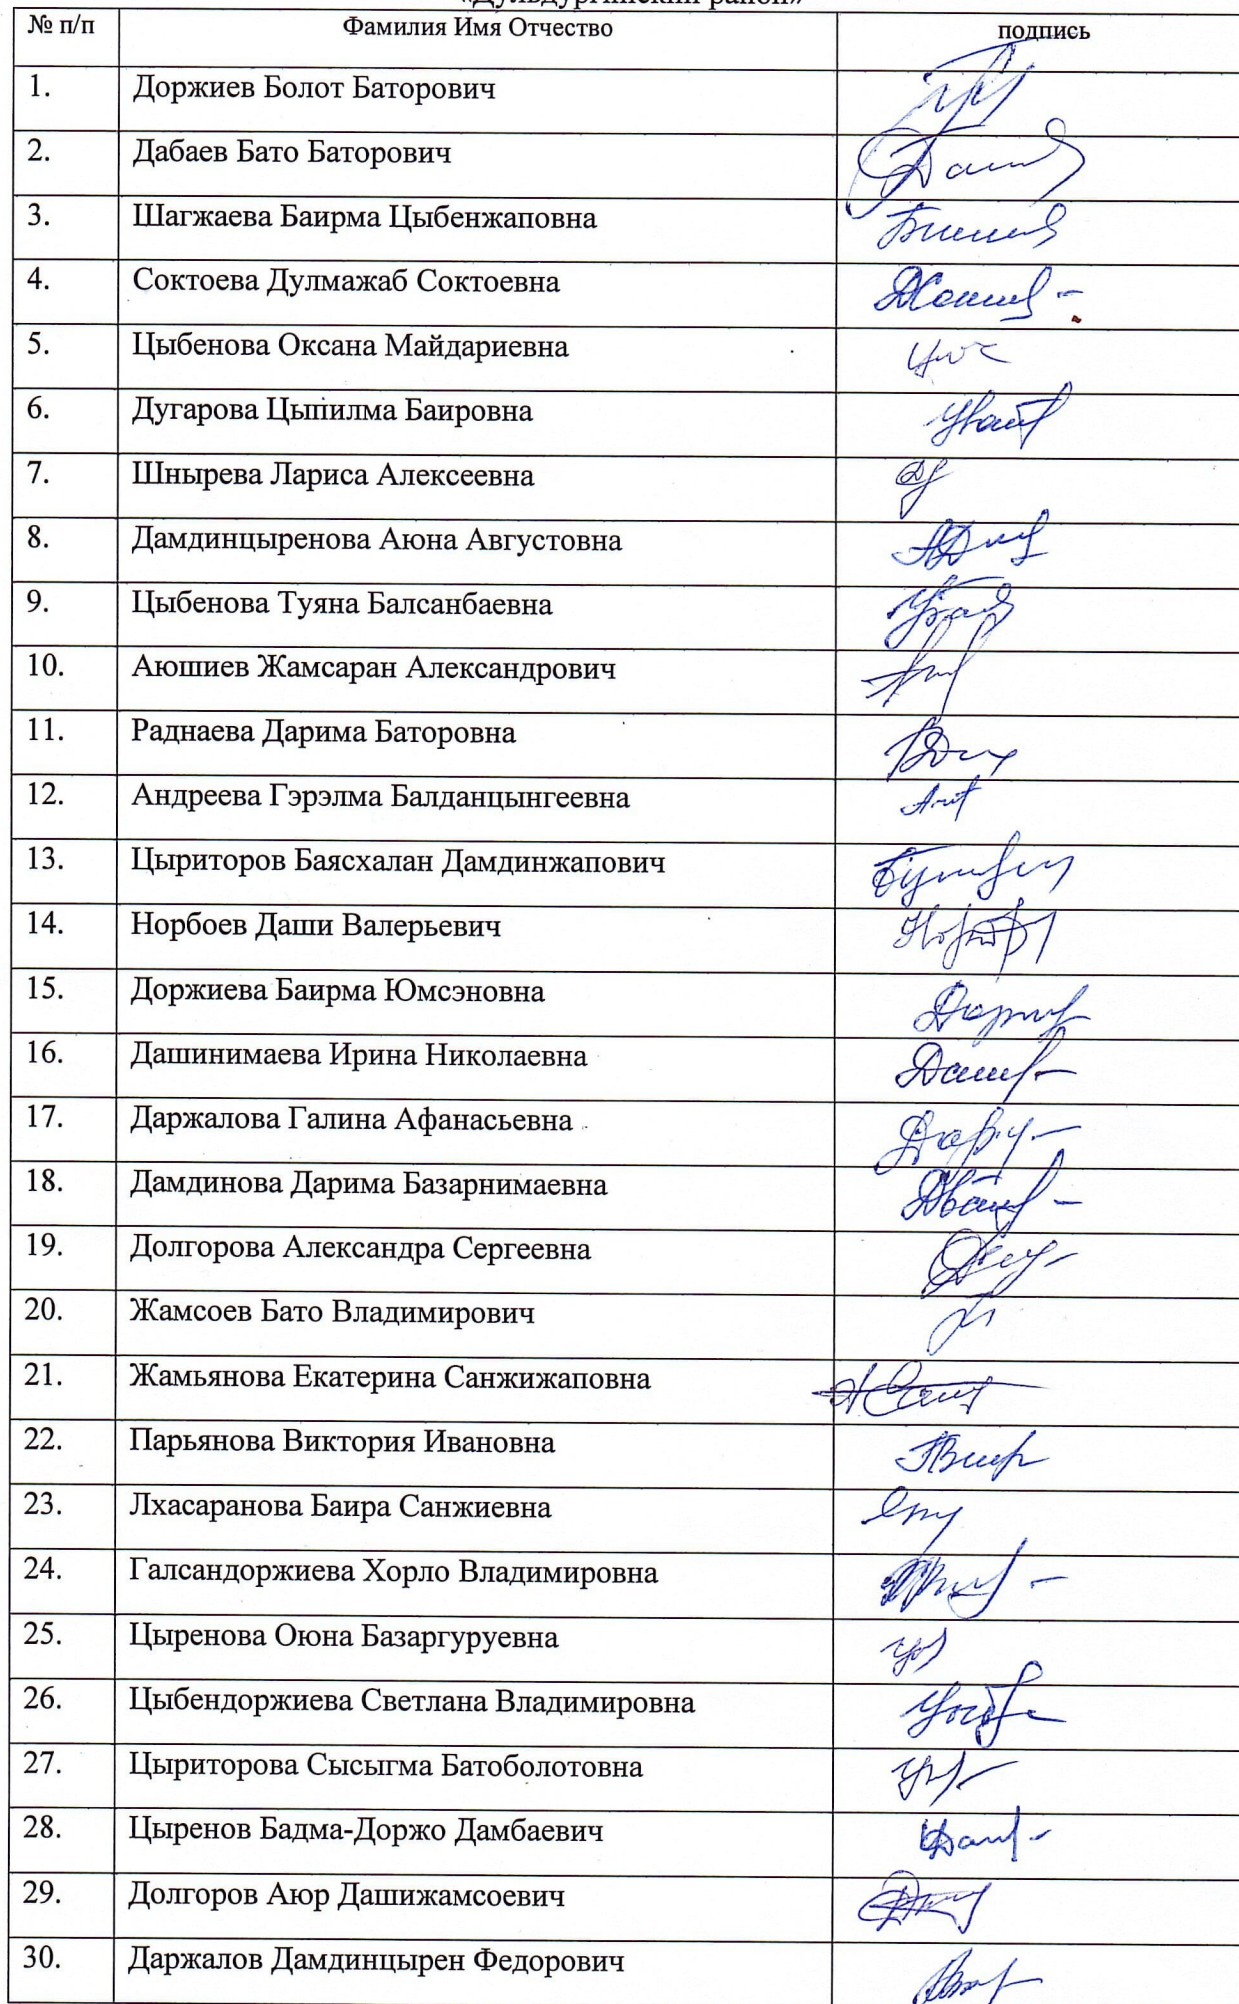 «Дульдургинский район»
№ п/п Фамилия Имя Отчество подпись
1. Доржиев Болот Баторович
2. Дабаев Бато Баторович
3. Шагжаева Баирма Цыбенжаповна
4. Соктоева Дулмажаб Соктоевна
5. Цыбенова Оксана Майдариевна
6. Дугарова Цыпилма Баировна
7. Шнырева Лариса Алексеевна
8. Дамдинцыренова Аюна Августовна
9. Цыбенова Туяна Балсанбаевна
10. Аюшиев Жамсаран Александрович
11. Раднаева Дарима Баторовна
12. Андреева Гэрэлма Балданцынгеевна
13. Цыриторов Баясхалан Дамдинжапович
14. Норбоев Даши Валерьевич
15. Доржиева Баирма Юмсэновна
16. Дашинимаева Ирина Николаевна
17. Даржалова Галина Афанасьевна
18. Дамдинова Дарима Базарнимаевна
19. Долгорова Александра Сергеевна
20. Жамсоев Бато Владимирович
21. Жамьянова Екатерина Санжижаповна
22. Парьянова Виктория Ивановна
23. Лхасаранова Баира Санжиевна
24. Галсандоржиева Хорло Владимировна
25. Цыренова Оюна Базаргуруевна
26. Цыбендоржиева Светлана Владимировна
27. Цыриторова Сысыгма Батоболотовна
28. Цыренов Бадма-Доржо Дамбаевич
29. Долгоров Аюр Дашижамсоевич
30. Даржалов Дамдинцырен Федорович